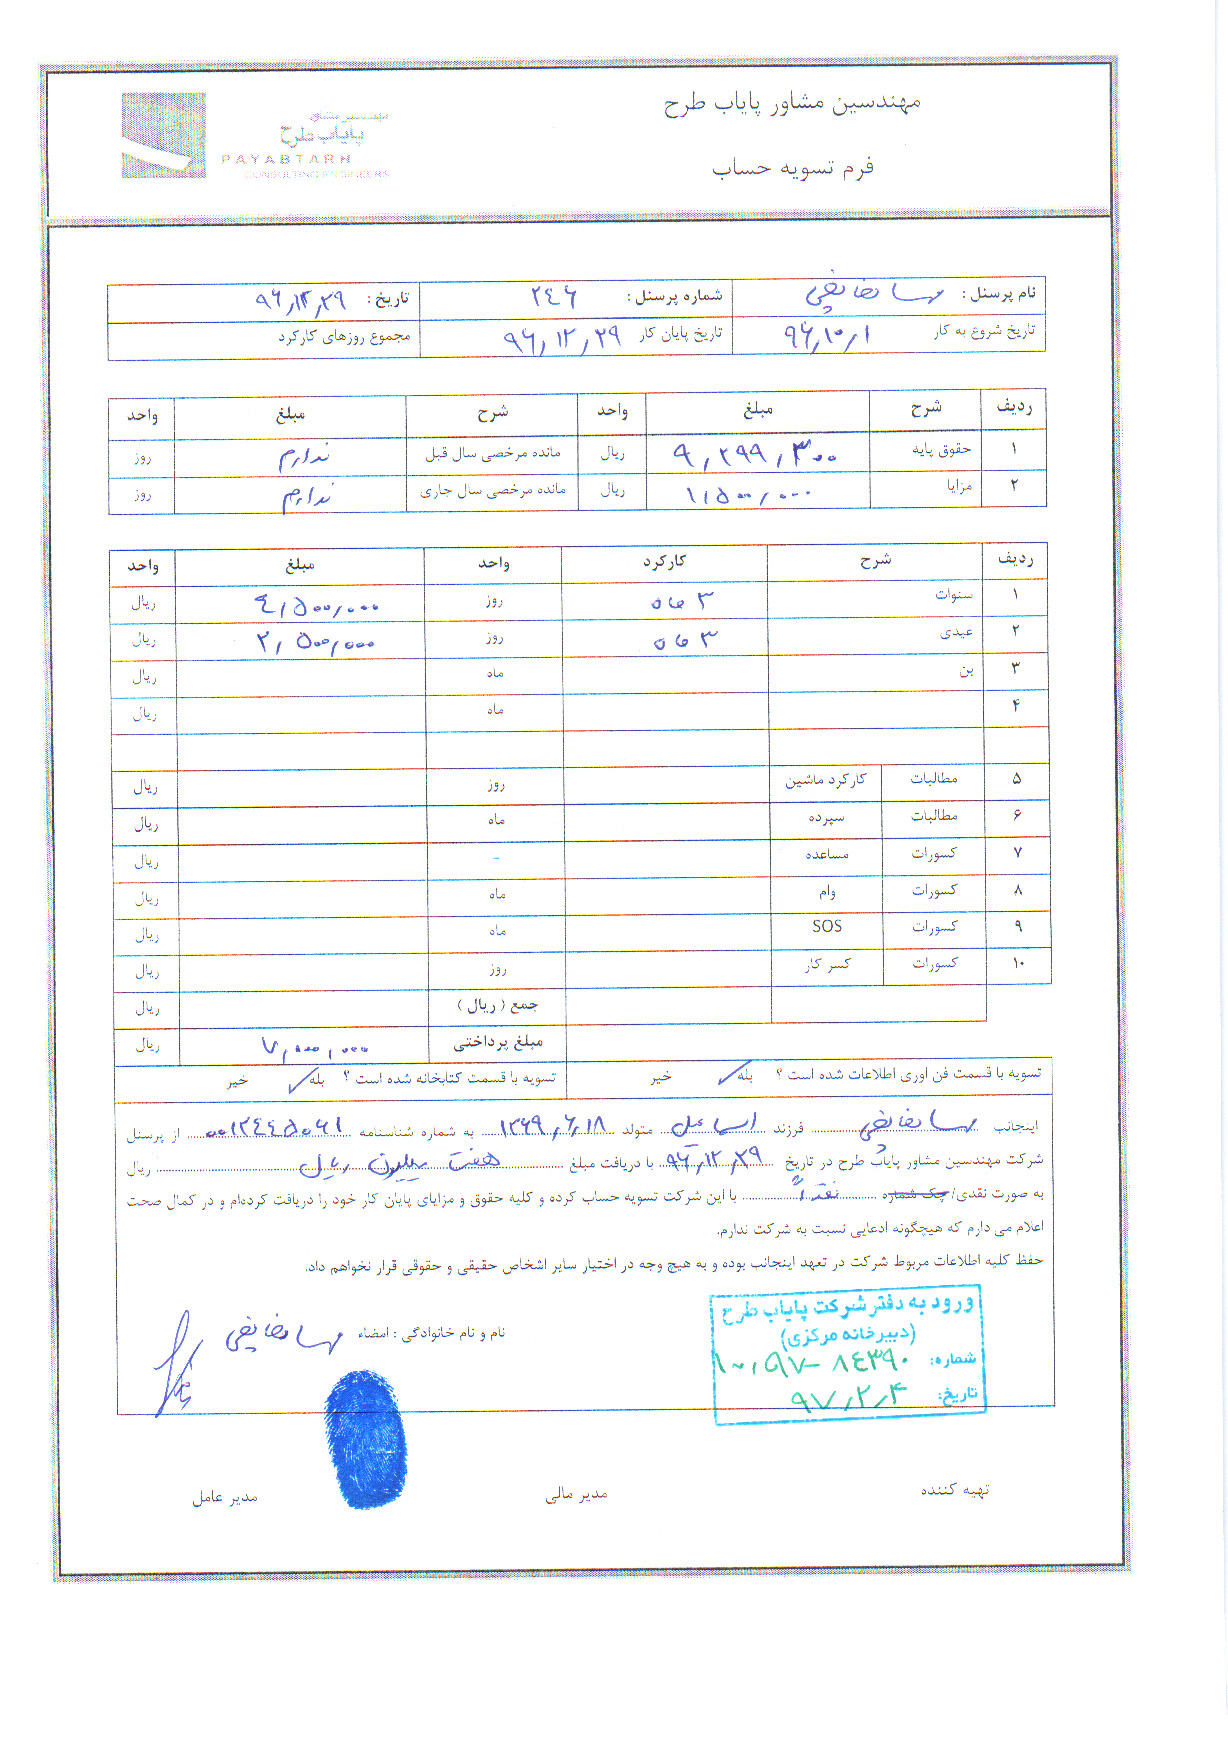 مهندسین مشاور پایاب طرح
مهندسین مشاور
پایاب طرح
PAYABTARH
CONSULTING ENGINEERS
فرم تسویه حساب
نام پرسنل : شماره پرسنل : ۲۴۶ تاریخ : ۹۶,۱۲,۲۹
تاریخ شروع به کار ۹۶,۱۰,۱ تاریخ پایان کار ۹۶,۱۲,۲۹ مجموع روزهای کارکرد
ردیف شرح مبلغ واحد شرح مبلغ واحد
۱ حقوق پایه ۹,۲۹۹,۳۰۰ ریال مانده مرخصی سال قبل ندارم روز
۲ مزایا ۱,۵۰۰,۰۰۰ ریال مانده مرخصی سال جاری ندارم روز
ردیف شرح کارکرد واحد مبلغ واحد
۱ سنوات ۳ ماه روز ۴,۵۰۰,۰۰۰ ریال
۲ عیدی ۳ ماه روز ۲,۵۰۰,۰۰۰ ریال
۳ بن ماه ریال
۴ ماه ریال
۵ مطالبات کارکرد ماشین روز ریال
۶ مطالبات سپرده ماه ریال
۷ کسورات مساعده - ریال
۸ کسورات وام ماه ریال
۹ کسورات SOS ماه ریال
۱۰ کسورات کسر کار روز ریال
جمع ( ریال ) ریال
مبلغ پرداختی ۷,۰۰۰,۰۰۰ ریال
تسویه با قسمت فن اوری اطلاعات شده است ؟ بله خیر تسویه با قسمت کتابخانه شده است ؟ بله خیر
اینجانب فرزند اسماعیل متولد ۱۳۶۹,۶,۱۸ به شماره شناسنامه ۰۰۱۲۴۴۵۰۶۱ از پرسنل
شرکت مهندسین مشاور پایاب طرح در تاریخ ۹۶,۱۲,۲۹ با دریافت مبلغ هفت میلیون ریال ریال
به صورت نقدی/چک شماره نقداً با این شرکت تسویه حساب کرده و کلیه حقوق و مزایای پایان کار خود را دریافت کرده‌ام و در کمال صحت
اعلام می دارم که هیچگونه ادعایی نسبت به شرکت ندارم.
حفظ کلیه اطلاعات مربوط شرکت در تعهد اینجانب بوده و به هیچ وجه در اختیار سایر اشخاص حقیقی و حقوقی قرار نخواهم داد.
نام و نام خانوادگی : امضاء
ورود به دفتر شرکت پایاب طرح
(دبیرخانه مرکزی)
شماره: ۱۰,۵۹۷-۸۴۳۹۰
تاریخ: ۹۷,۲,۴
تهیه کننده مدیر مالی مدیر عامل